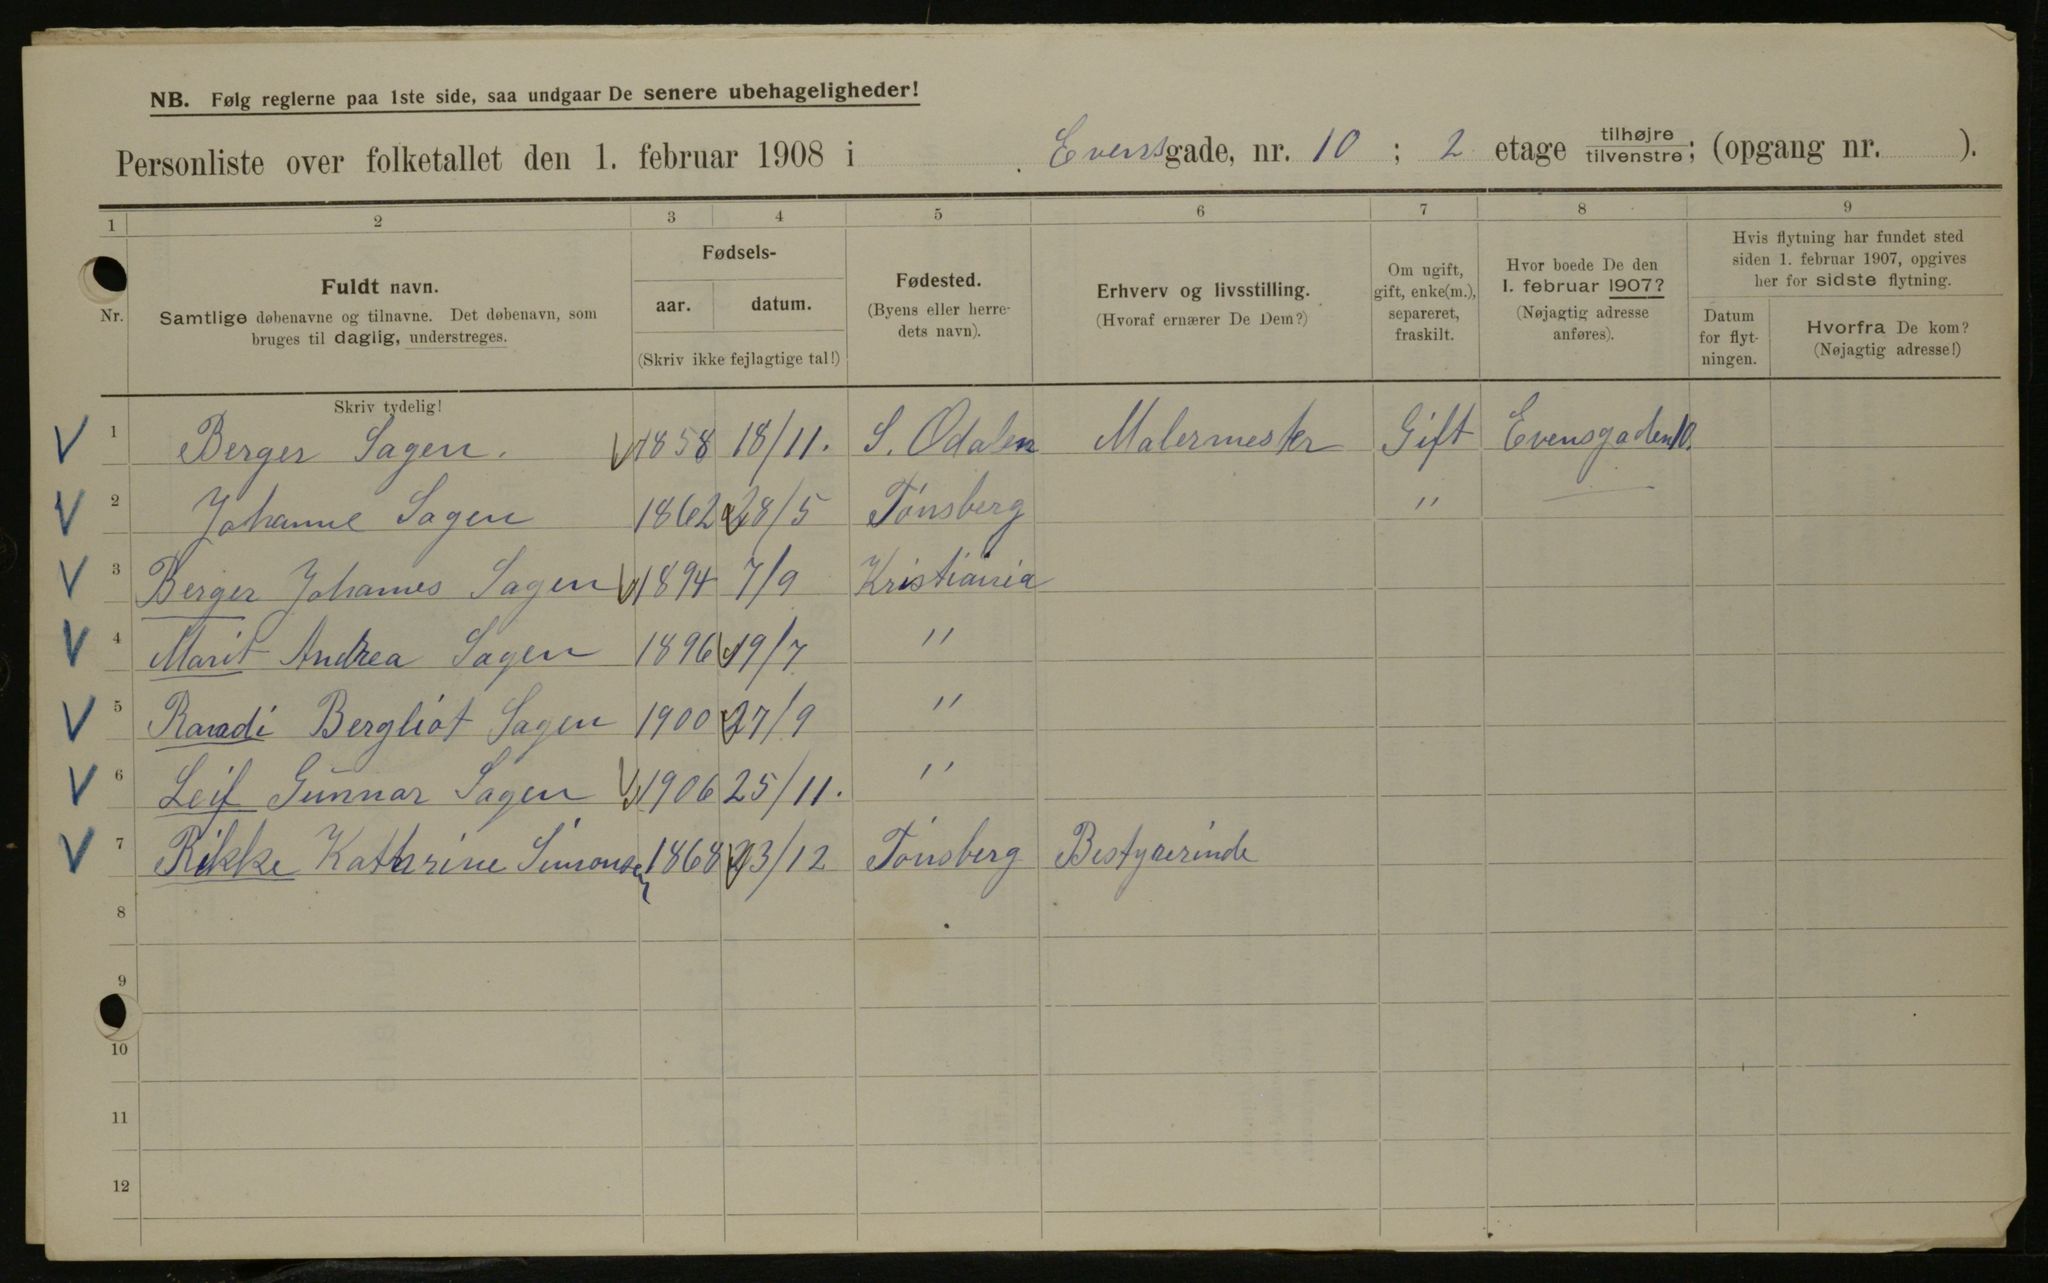 NB. Følg reglerne paa 1ste side, saa undgaar De senere ubehageligheder!
Personliste over folketallet den 1. februar 1908 i Evensgade, nr. 10 ; 2 etage tilhøjre/tilvenstre; (opgang nr. ).
1 2 3 4 5 6 7 8 9
Nr.
Fuldt navn.
Samtlige døbenavne og tilnavne. Det døbenavn, som
bruges til daglig, understreges.
Skriv tydelig!
Fødsels-
aar. datum.
(Skriv ikke fejlagtige tal!)
Fødested.
(Byens eller herre-
dets navn).
Erhverv og livsstilling.
(Hvoraf ernærer De Dem?)
Om ugift,
gift, enke(m.),
separeret,
fraskilt.
Hvor boede De den
1. februar 1907?
(Nøjagtig adresse
anføres).
Hvis flytning har fundet sted
siden 1. februar 1907, opgives
her for sidste flytning.
Datum
for flyt-
ningen.
Hvorfra De kom?
(Nøjagtig adresse!)
1 Berger Sagen. 1858 18/11. S. Odalen Malermester Gift Evensgaden 10.
2 Johanne Sagen 1862 28/5 Tönsberg " —
3 Berger Johannes Sagen 1894 7/9 Kristiania
4 Marit Andrea Sagen 1896 19/7 "
5 Randi Bergliot Sagen 1900 27/9 "
6 Leif Gunnar Sagen 1906 25/11. "
7 Rikke Kathrine Simonsen 1868 23/12 Tönsberg Bestyrerinde
8
9
10
11
12